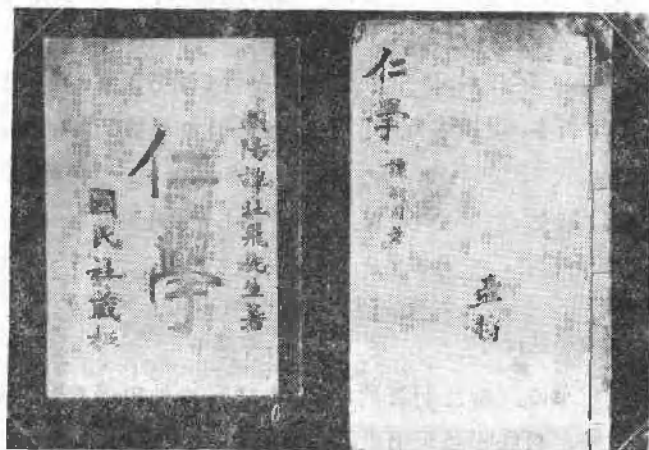 瀏陽譚壯飛先生著
仁學
國民社藏板
仁學
譚嗣同著